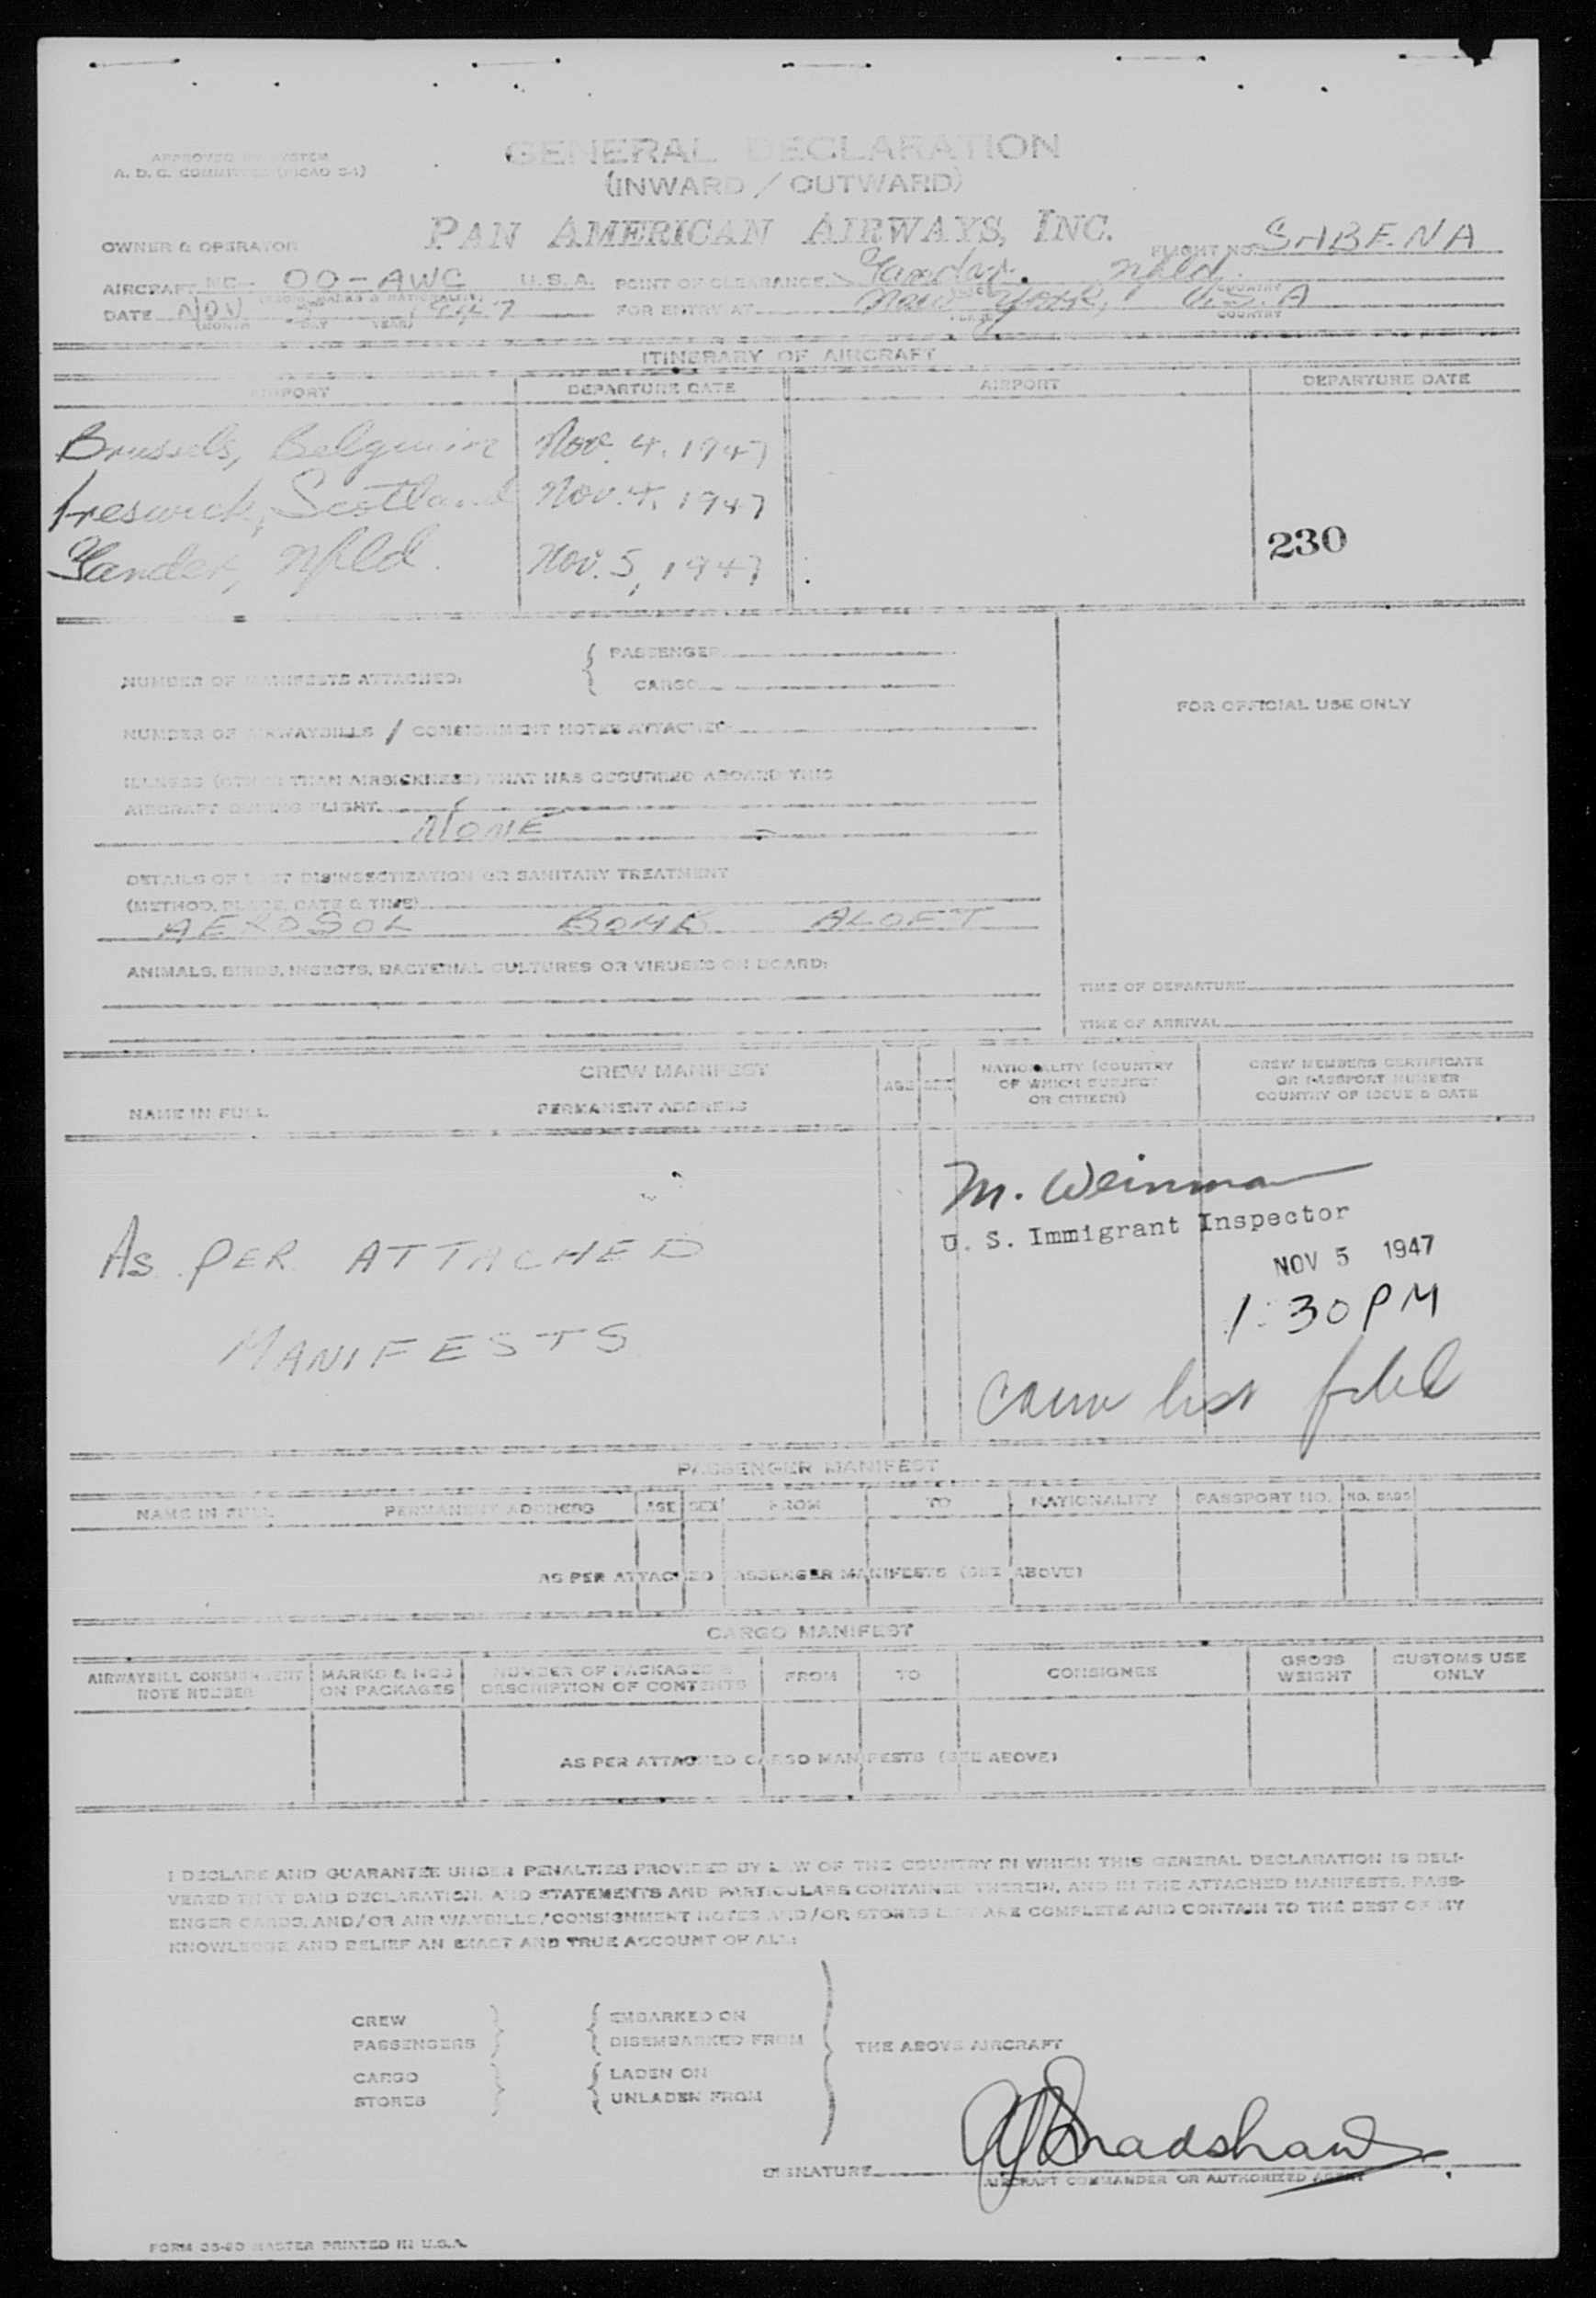 GENERAL DECLARATION
(INWARD / OUTWARD)
APPROVED BY SYSTEM
A. D. C. COMMITTEE (PICAO C-1)
PAN AMERICAN AIRWAYS, INC.
OWNER & OPERATOR
FLIGHT NO. SABENA
AIRCRAFT NC- OO-AWC U.S.A. POINT OF CLEARANCE Gander, Nfld.
DATE NOV 5 1947 FOR ENTRY AT New York, U.S.A
MONTH DAY YEAR PLACE COUNTRY
ITINERARY OF AIRCRAFT
AIRPORT DEPARTURE DATE AIRPORT DEPARTURE DATE
Brussels, Belguim Nov. 4, 1947
Preswick, Scotland Nov. 4, 1947
Gander, Nfld. Nov. 5, 1947
230
NUMBER OF MANIFESTS ATTACHED: PASSENGER
CARGO
FOR OFFICIAL USE ONLY
NUMBER OF AIRWAYBILLS / CONSIGNMENT NOTES ATTACHED
ILLNESS (OTHER THAN AIRSICKNESS) THAT HAS OCCURRED ABOARD THIS
AIRCRAFT DURING FLIGHT
NONE
DETAILS OF LAST DISINSECTIZATION OR SANITARY TREATMENT
(METHOD, PLACE, DATE & TIME)
AEROSOL BOMB ALOFT
ANIMALS, BIRDS, INSECTS, BACTERIAL CULTURES OR VIRUSES ON BOARD:
TIME OF DEPARTURE
TIME OF ARRIVAL
CREW MANIFEST
NAME IN FULL PERMANENT ADDRESS AGE SEX NATIONALITY (COUNTRY OF WHICH SUBJECT OR CITIZEN) CREW MEMBERS CERTIFICATE OR PASSPORT NUMBER COUNTRY OF ISSUE & DATE
M. Weinman
U. S. Immigrant Inspector
NOV 5 1947
1:30 PM
AS PER ATTACHED
MANIFESTS
list filed
PASSENGER MANIFEST
NAME IN FULL PERMANENT ADDRESS AGE SEX FROM TO NATIONALITY PASSPORT NO. NO. BAGS
AS PER ATTACHED PASSENGER MANIFESTS (SEE ABOVE)
CARGO MANIFEST
AIRWAYBILL CONSIGNMENT NOTE NUMBER MARKS & NOS ON PACKAGES NUMBER OF PACKAGES & DESCRIPTION OF CONTENTS FROM TO CONSIGNEE GROSS WEIGHT CUSTOMS USE ONLY
AS PER ATTACHED CARGO MANIFESTS (SEE ABOVE)
I DECLARE AND GUARANTEE UNDER PENALTIES PROVIDED BY LAW OF THE COUNTRY IN WHICH THIS GENERAL DECLARATION IS DELI-
VERED THAT SAID DECLARATION, AND STATEMENTS AND PARTICULARS CONTAINED THEREIN, AND IN THE ATTACHED MANIFESTS, PASS-
ENGER CARDS, AND/OR AIR WAYBILLS/CONSIGNMENT NOTES AND/OR STORES LIST ARE COMPLETE AND CONTAIN TO THE BEST OF MY
KNOWLEDGE AND BELIEF AN EXACT AND TRUE ACCOUNT OF ALL:
CREW EMBARKED ON
PASSENGERS DISEMBARKED FROM THE ABOVE AIRCRAFT
CARGO LADEN ON
STORES UNLADEN FROM
SIGNATURE Bradshaw
AIRCRAFT COMMANDER OR AUTHORIZED AGENT
FORM 35-80 MASTER PRINTED IN U.S.A.